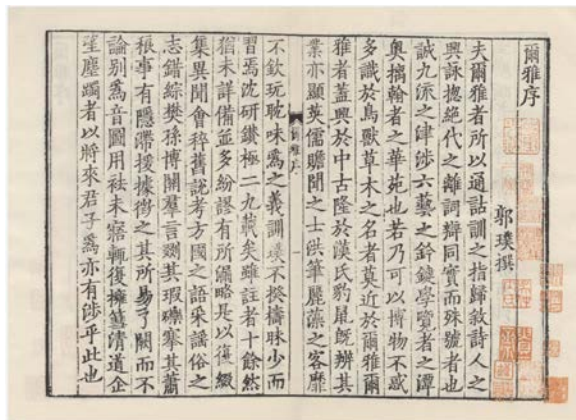 爾雅序
郭璞撰
夫爾雅者所以通詁訓之指歸敘詩人之
興詠揔絕代之離詞辯同實而殊號者也
誠九流之津涉六藝之鈐鍵學覽者之潭
奧摛翰者之華苑也若乃可以博物不惑
多識於鳥獸草木之名者莫近於爾雅爾
雅者蓋興於中古隆於漢氏豹鼠既辨其
業亦顯英儒贍聞之士洪筆麗藻之客靡
爾雅序
不欽玩耽味爲之義訓璞不揆檮昧少而
習焉沈研鑽極二九載矣雖註者十餘然
猶未詳備並多紛謬有所漏略是以復綴
集異聞會稡舊說考方國之語采謠俗之
志錯綜樊孫博關羣言剟其瑕礫搴其蕭
稂事有隱滯援據徵之其所易了闕而不
論別爲音圖用袪未寤輒復擁篲清道企
望塵躅者以將來君子爲亦有涉乎此也